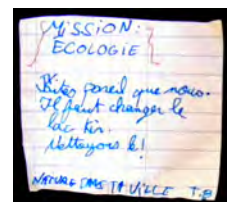 MISSION:
ECOLOGIE
Dites pareil que nous.
Il faut changer le
lac Kir.
Nettoyons le!
NATURE DANS TA VILLE T.B